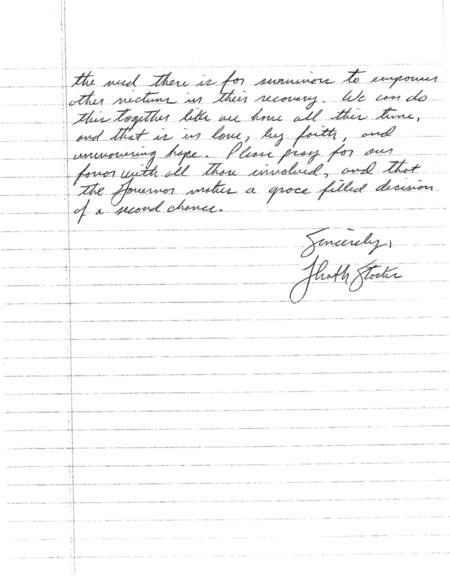 the need there is for survivors to empower
other victims in their recovery. We can do
this together like we have all this time,
and that is in love, by faith, and
unwavering hope. Please pray for our
favor with all those involved, and that
the Governor makes a grace filled decision
of a second chance.
Sincerely,
Heath Stocks